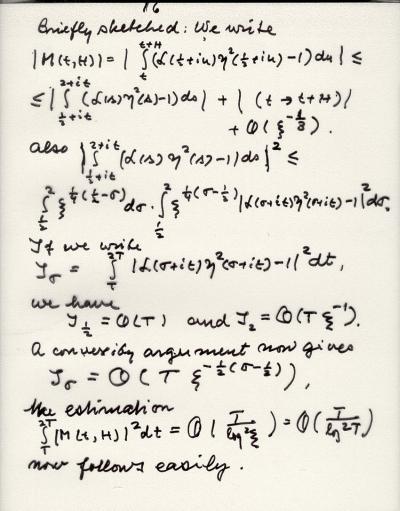 16
Briefly sketched: We write
|M(t,H)| = | ∫_t^{t+H} (L(½+iu) η²(½+iu) −1) du | ≤
≤ | ∫_{½+it}^{2+it} (L(s) η²(s) −1) ds | + | (t → t+H) |
+ O(ξ^{-1/8}).
Also | ∫_{½+it}^{2+it} (L(s) η²(s) −1) ds |² ≤
∫_{½}^{2} ξ^{¼(½−σ)} dσ · ∫_{½}^{2} ξ^{¼(σ−½)} |L(σ+it) η²(σ+it) −1|² dσ,
If we write
J_σ = ∫_T^{2T} |L(σ+it) η²(σ+it) −1|² dt,
we have
J_{½} = O(T) and J_2 = O(T ξ^{-1}).
A convexity argument now gives
J_σ = O( T ξ^{-½(σ−½)} ),
the estimation
∫_T^{2T} |M(t,H)|² dt = O( T / log²ξ ) = O( T / log²T )
now follows easily.